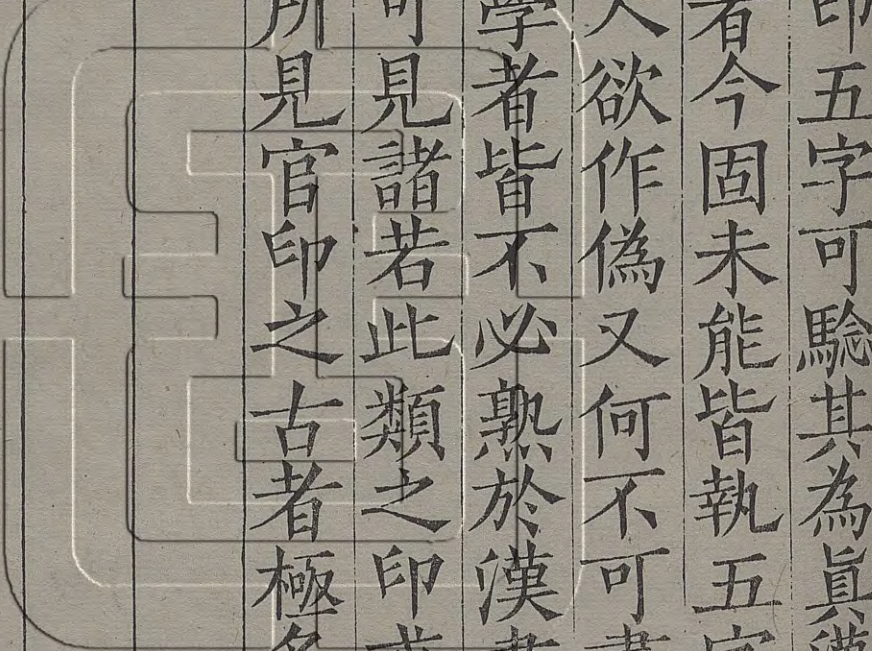 印五字可騐其為眞漢
者今固未能皆執五字
人欲作偽又何不可書
學者皆不必熟於漢書
可見諸若此類之印或
所見官印之古者極多